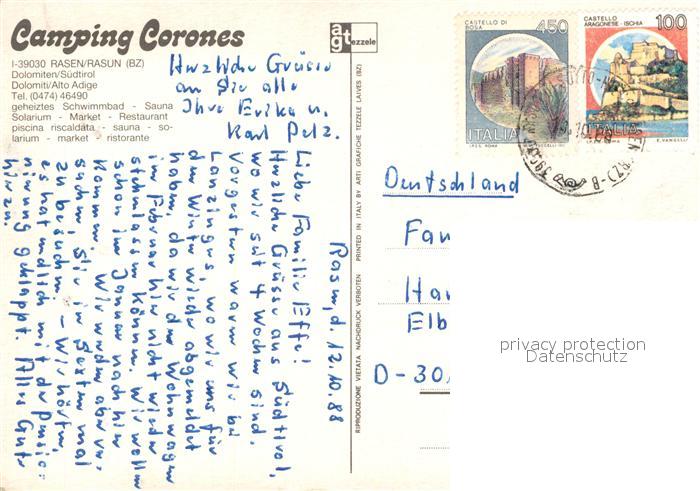 Camping Corones
I-39030 RASEN/RASUN (BZ)
Dolomiten/Südtirol
Dolomiti/Alto Adige
Tel. (0474) 46490
geheiztes Schwimmbad - Sauna
Solarium - Market - Restaurant
piscina riscaldata - sauna - so-
larium - market - ristorante
agt tezzele
Herzliche Grüsse
an Sie alle
Ihre Erika u.
Karl Pelz.
Rasen, d. 12.10.88
Liebe Familie Effe!
Herzliche Grüsse aus Südtirol,
wo wir seit 4 Wochen sind.
Vorgestern waren wir bei
Lanzingers, wo wir uns für
den Winter wieder abgemeldet
haben, da wir den Wohnwagen
im Februar hier nicht wieder
stehnlassen können. Wir wollen
schon im Januar nach hier
kommen. Wir werden aber ver-
suchen, Sie in Sexten mal
zu besuchen. – Wir hörten,
es hat endlich mit der Pensio=
nierung geklappt. Alles Gute
hierzu.
RIPRODUZIONE VIETATA NACHDRUCK VERBOTEN PRINTED IN ITALY BY ARTI GRAFICHE TEZZELE LAIVES (BZ)
CASTELLO DI
BOSA
450
ITALIA
I.P.S. ROMA
CASTELLO
ARAGONESE - ISCHIA
100
ITALIA
E. VANGELLI
Deutschland
Fam
Han
Elb
D-30
privacy protection
Datenschutz